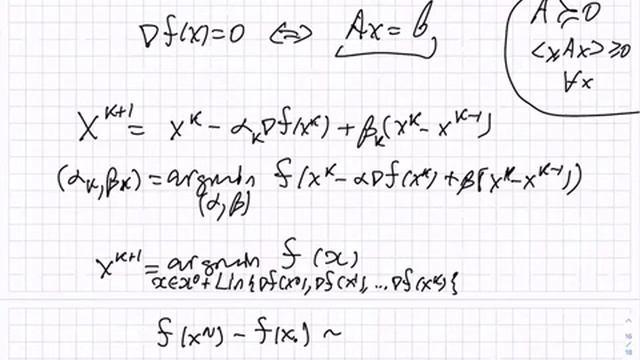 ∇f(x)=0 ⇔ Ax = b
A ≽ 0
<x, Ax> ≥ 0
∀x
x^{k+1} = x^k - α_k ∇f(x^k) + β_k (x^k - x^{k-1})
(α_k, β_k) = argmin_{(α,β)} f(x^k - α∇f(x^k) + β(x^k - x^{k-1}))
x^{k+1} = argmin_{x∈x^0 + Lin{∇f(x^0), ∇f(x^1), ... ∇f(x^k)}} f(x)
f(x^N) - f(x_*) ~